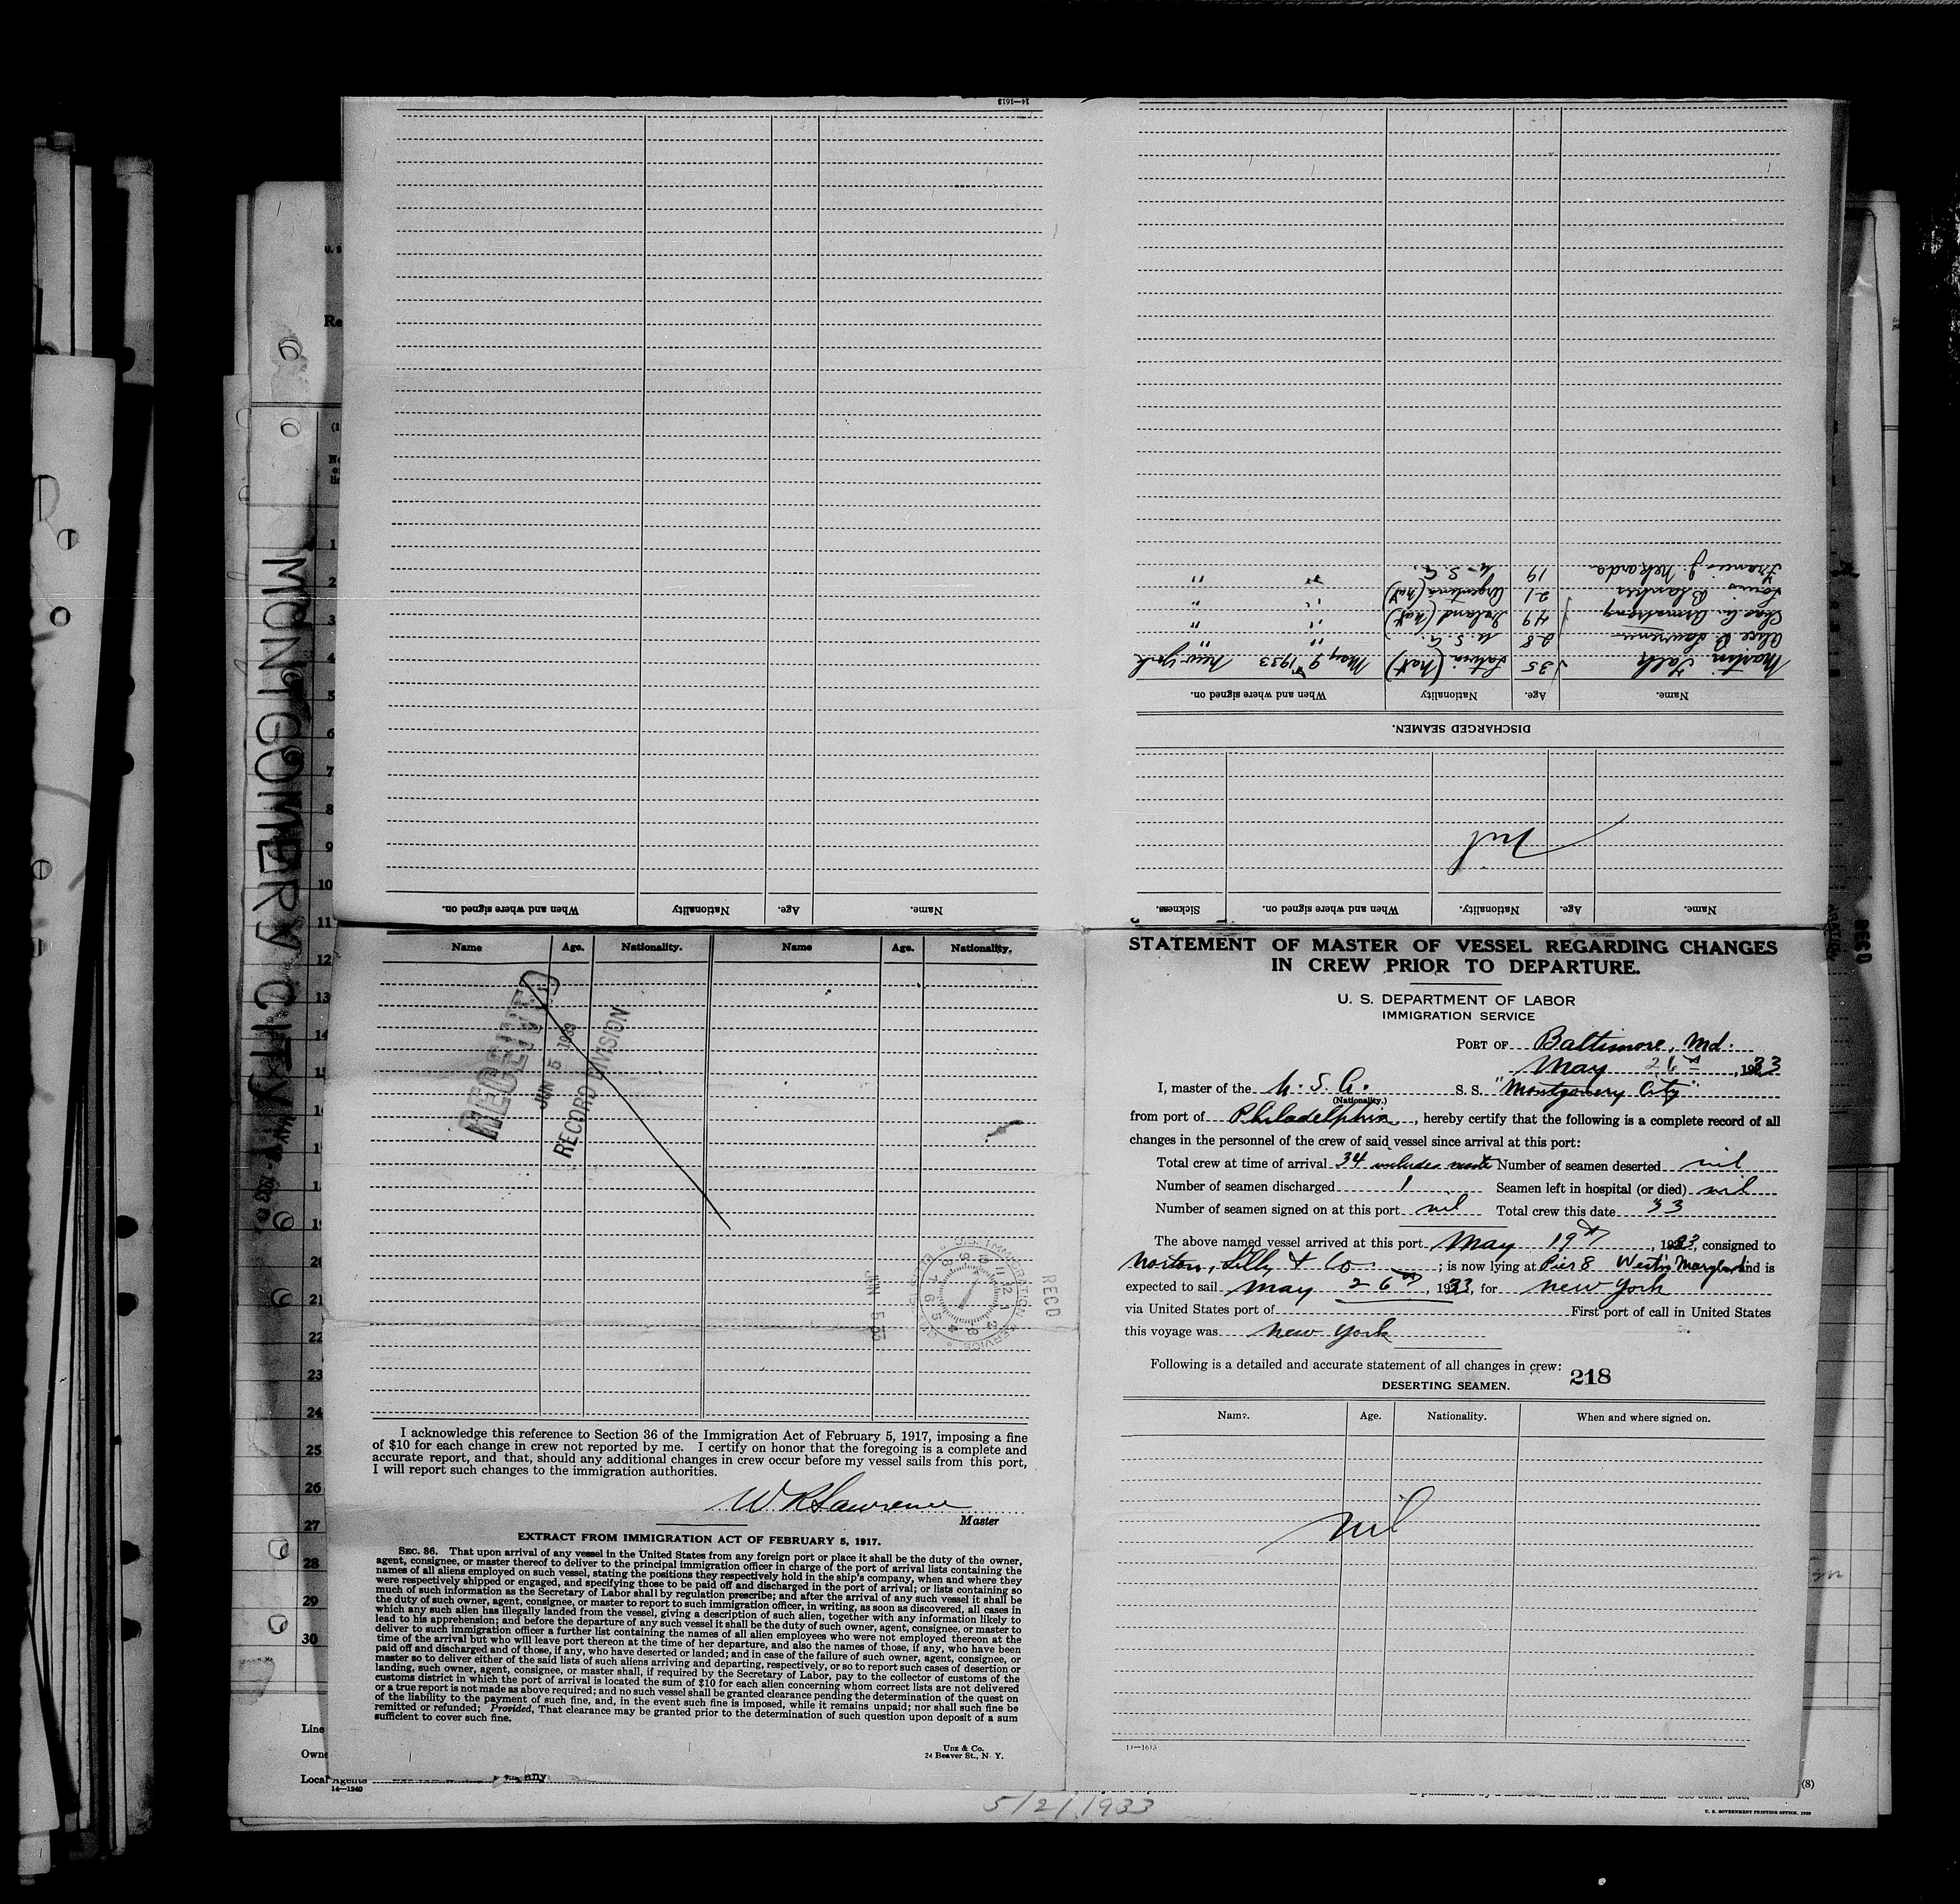 STATEMENT OF MASTER OF VESSEL REGARDING CHANGES
IN CREW PRIOR TO DEPARTURE.
U. S. DEPARTMENT OF LABOR
IMMIGRATION SERVICE
PORT OF Baltimore, Md.
May 26th, 1933
I, master of the U.S.A. S. S. "Montgomery City"
(Nationality.)
from port of Philadelphia, hereby certify that the following is a complete record of all
changes in the personnel of the crew of said vessel since arrival at this port:
Total crew at time of arrival 34 includes master Number of seamen deserted nil
Number of seamen discharged 1 Seamen left in hospital (or died) nil
Number of seamen signed on at this port nil Total crew this date 33
The above named vessel arrived at this port May 19th, 1933, consigned to
Norton, Lilly & Co. ; is now lying at Pier 8 Westn Maryland and is
expected to sail May 26th, 1933, for New York
via United States port of First port of call in United States
this voyage was New York
Following is a detailed and accurate statement of all changes in crew:
218
DESERTING SEAMEN.
Name. Age. Nationality. When and where signed on.
nil
14—1613
Name. Age. Nationality. When and where signed on. Sickness.
Nil
DISCHARGED SEAMEN.
Name. Age. Nationality When and where signed on.
Martin Falk 35 Latvia (nat) May 9 1933 New York
Alice D Lawrence 28 U.S.A. " "
Chas A. Armstrong 49 Ireland (nat) " "
Louis Blankes 21 Argentina (nat) " "
Francis J. Nekarda 19 U.S.A. " "
Name. Age. Nationality When and where signed on.
14—1613
Name Age. Nationality. Name Age. Nationality.
RECEIVED
JUN 5 1933
RECORD DIVISION
REC'D
JUN 5 33
IMMIGRATION SERVICE
I acknowledge this reference to Section 36 of the Immigration Act of February 5, 1917, imposing a fine
of $10 for each change in crew not reported by me. I certify on honor that the foregoing is a complete and
accurate report, and that, should any additional changes in crew occur before my vessel sails from this port,
I will report such changes to the immigration authorities.
W R Lawrence
Master
EXTRACT FROM IMMIGRATION ACT OF FEBRUARY 5, 1917.
SEC. 36. That upon arrival of any vessel in the United States from any foreign port or place it shall be the duty of the owner,
agent, consignee, or master thereof to deliver to the principal immigration officer in charge of the port of arrival lists containing the
names of all aliens employed on such vessel, stating the positions they respectively hold in the ship's company, when and where they
were respectively shipped or engaged, and specifying those to be paid off and discharged in the port of arrival; or lists containing so
much of such information as the Secretary of Labor shall by regulation prescribe; and after the arrival of any such vessel it shall be
the duty of such owner, agent, consignee, or master to report to such immigration officer, in writing, as soon as discovered, all cases in
which any such alien has illegally landed from the vessel, giving a description of such alien, together with any information likely to
lead to his apprehension; and before the departure of any such vessel it shall be the duty of such owner, agent, consignee, or master to
deliver to such immigration officer a further list containing the names of all alien employees who were not employed thereon at the
time of the arrival but who will leave port thereon at the time of her departure, and also the names of those, if any, who have been
paid off and discharged and of those, if any, who have deserted or landed; and in case of the failure of such owner, agent, consignee, or
master so to deliver either of the said lists of such aliens arriving and departing, respectively, or so to report such cases of desertion or
landing, such owner, agent, consignee, or master shall, if required by the Secretary of Labor, pay to the collector of customs of the
customs district in which the port of arrival is located the sum of $10 for each alien concerning whom correct lists are not delivered
or a true report is not made as above required; and no such vessel shall be granted clearance pending the determination of the quest on
of the liability to the payment of such fine, and, in the event such fine is imposed, while it remains unpaid; nor shall such fine be
remitted or refunded; Provided, That clearance may be granted prior to the determination of such question upon deposit of a sum
sufficient to cover such fine.
Unz & Co.
24 Beaver St., N. Y.
MONTGOMERY CITY
1
2
3
4
5
6
7
8
9
10
11
12
13
14
15
20
21
22
23
24
25
26
27
28
29
30
Line
Local Agents
14—1240
any
5/2/1933
(8)
U. S. GOVERNMENT PRINTING OFFICE